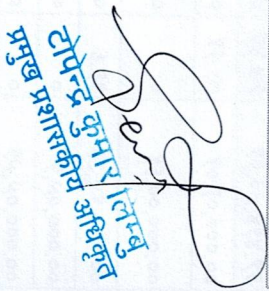 टोपेन्द्र कुमार लुम्बु
प्रमुख प्रशासकीय अधिकृत